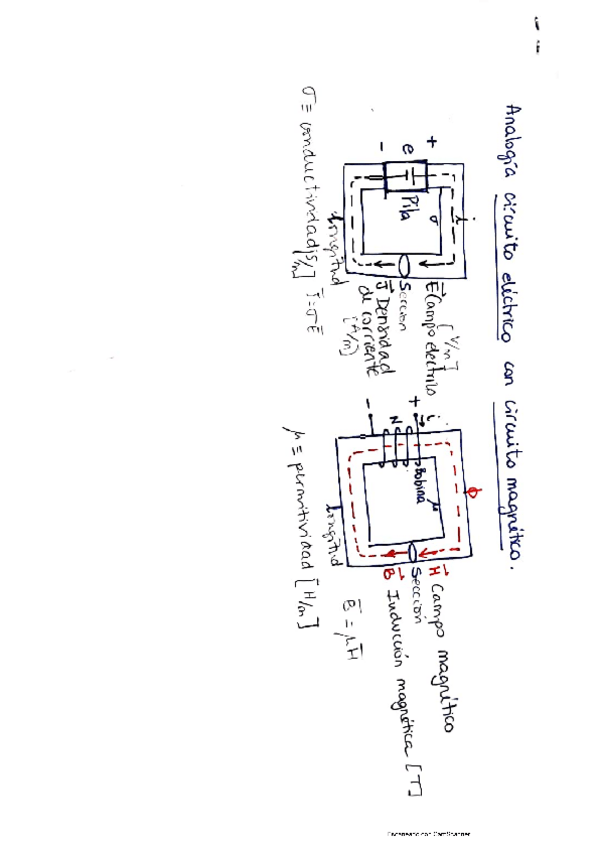 Analogía circuito eléctrico con circuito magnético.
+
e
-
Pila
i
σ
Longitud
E Campo eléctrico [V/m]
Sección
J Densidad de corriente
[A/m]
σ = conductividad [S/m] J=σE
+
i
N
-
Bobina
μ
Φ
Longitud
H Campo magnético
Sección
B Inducción magnética [T]
B = μH
μ = permitividad [H/m]
Escaneado con CamScanner